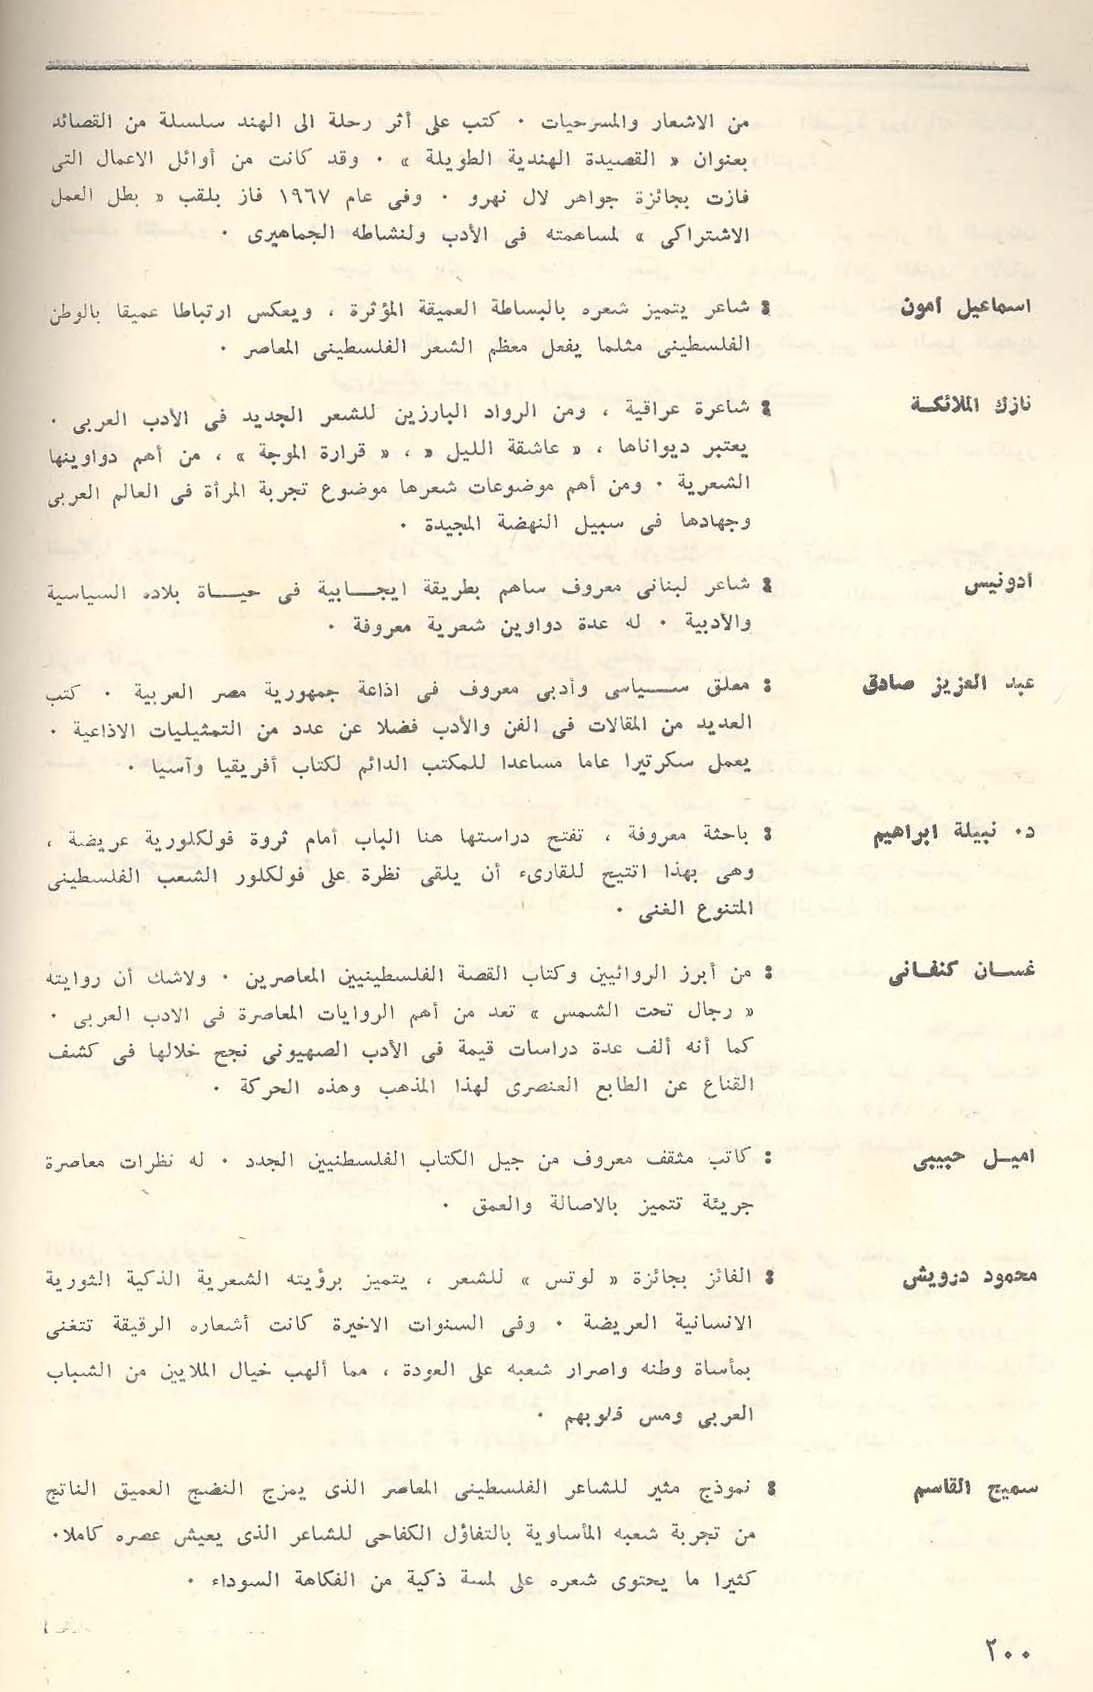 من الاشعار والمسرحيات ٠ كتب على أثر رحلة الى الهند سلسلة من القصائد
بعنوان « القصيدة الهندية الطويلة » ٠ وقد كانت من أوائل الاعمال التى
فازت بجائزة جواهر لال نهرو ٠ وفى عام ١٩٦٧ فاز بلقب « بطل العمل
الاشتراكى » لمساهمته فى الأدب ولنشاطه الجماهيرى ٠
اسماعيل أمون : شاعر يتميز شعره بالبساطة العميقة المؤثرة ، ويعكس ارتباطا عميقا بالوطن
الفلسطينى مثلما يفعل معظم الشعر الفلسطينى المعاصر ٠
نازك الملائكة : شاعرة عراقية ، ومن الرواد البارزين للشعر الجديد فى الأدب العربى ٠
يعتبر ديواناها ، « عاشقة الليل « ، « قرارة الموجة » ، من أهم دواوينها
الشعرية ٠ ومن أهم موضوعات شعرها موضوع تجربة المرأة فى العالم العربى
وجهادها فى سبيل النهضة المجيدة ٠
أدونيس : شاعر لبنانى معروف ساهم بطريقة ايجابية فى حياة بلاده السياسية
والأدبية ٠ له عدة دواوين شعرية معروفة ٠
عبد العزيز صادق : معلق سياسى وأدبى معروف فى اذاعة جمهورية مصر العربية ٠ كتب
العديد من المقالات فى الفن والأدب فضلا عن عدد من التمثيليات الاذاعية ٠
يعمل سكرتيرا عاما مساعدا للمكتب الدائم لكتاب أفريقيا وآسيا ٠
د٠ نبيلة ابراهيم : باحثة معروفة ، تفتح دراستها هنا الباب أمام ثروة فولكلورية عريضة ،
وهى بهذا اتتيح للقارىء أن يلقى نظرة على فولكلور الشعب الفلسطينى
المتنوع الغنى ٠
غسان كنفانى : من أبرز الروائيين وكتاب القصة الفلسطينيين المعاصرين ٠ ولاشك أن روايته
« رجال تحت الشمس » تعد من أهم الروايات المعاصرة فى الادب العربى ٠
كما أنه ألف عدة دراسات قيمة فى الأدب الصهيونى نجح خلالها فى كشف
القناع عن الطابع العنصرى لهذا المذهب وهذه الحركة ٠
اميل حبيبى : كاتب مثقف معروف من جيل الكتاب الفلسطنيين الجدد ٠ له نظرات معاصرة
جريئة تتميز بالاصالة والعمق ٠
محمود درويش : الفائز بجائزة « لوتس » للشعر ، يتميز برؤيته الشعرية الذكية الثورية
الانسانية العريضة ٠ وفى السنوات الاخيرة كانت أشعاره الرقيقة تتغنى
بمأساة وطنه واصرار شعبه على العودة ، مما ألهب خيال الملايين من الشباب
العربى ومس قلوبهم ٠
سميح القاسم : نموذج مثير للشاعر الفلسطينى المعاصر الذى يمزج النضج العميق الناتج
من تجربة شعبه المأساوية بالتفاؤل الكفاحى للشاعر الذى يعيش عصره كاملا٠
كثيرا ما يحتوى شعره على لمسة ذكية من الفكاهة السوداء ٠
٢٠٠